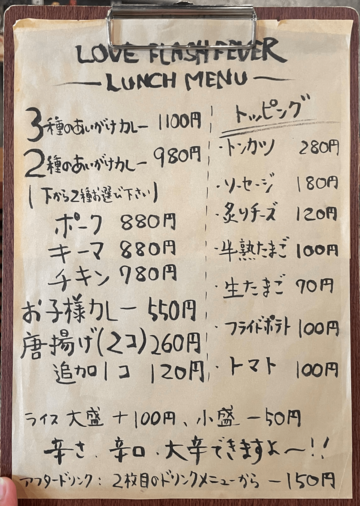 LOVE FLASH FEVER
LUNCH MENU
3種のあいがけカレー 1100円
2種のあいがけカレー 980円
(下から2種お選び下さい)
ポーク 880円
キーマ 880円
チキン 780円
お子様カレー 550円
唐揚げ(2コ) 260円
追加1コ 120円
トッピング
・トンカツ 280円
・ソーセージ 180円
・炙りチーズ 120円
・半熟たまご 100円
・生たまご 70円
・フライドポテト 100円
・トマト 100円
ライス 大盛 +100円、小盛 -50円
辛さ 辛口・大辛できますよ〜!!
アフタードリンク:2枚目のドリンクメニューから -150円